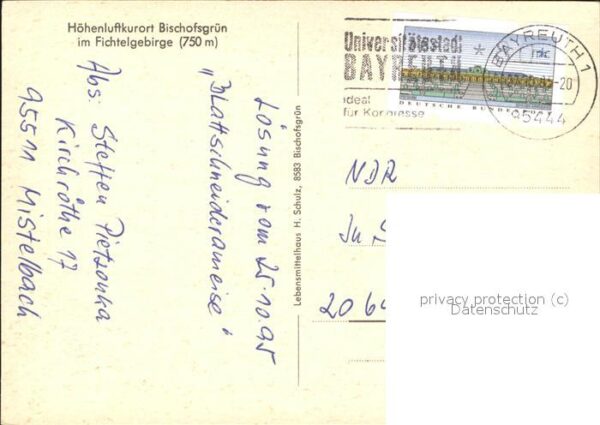 Höhenluftkurort Bischofsgrün
im Fichtelgebirge (750 m)
Lösung vom 25.10.95
„Blattschneiderameise"
Abs: Steffen Pietzonka
Kirchröthe 17
95511 Mistelbach
Lebensmittelhaus H. Schulz, 8583 Bischofsgrün
Universitätsstadt
BAYREUTH
ideal
für Kongresse
DEUTSCHE BUNDESPOST
BAYREUTH 1
95444
NDR
privacy protection (c)
Datenschutz